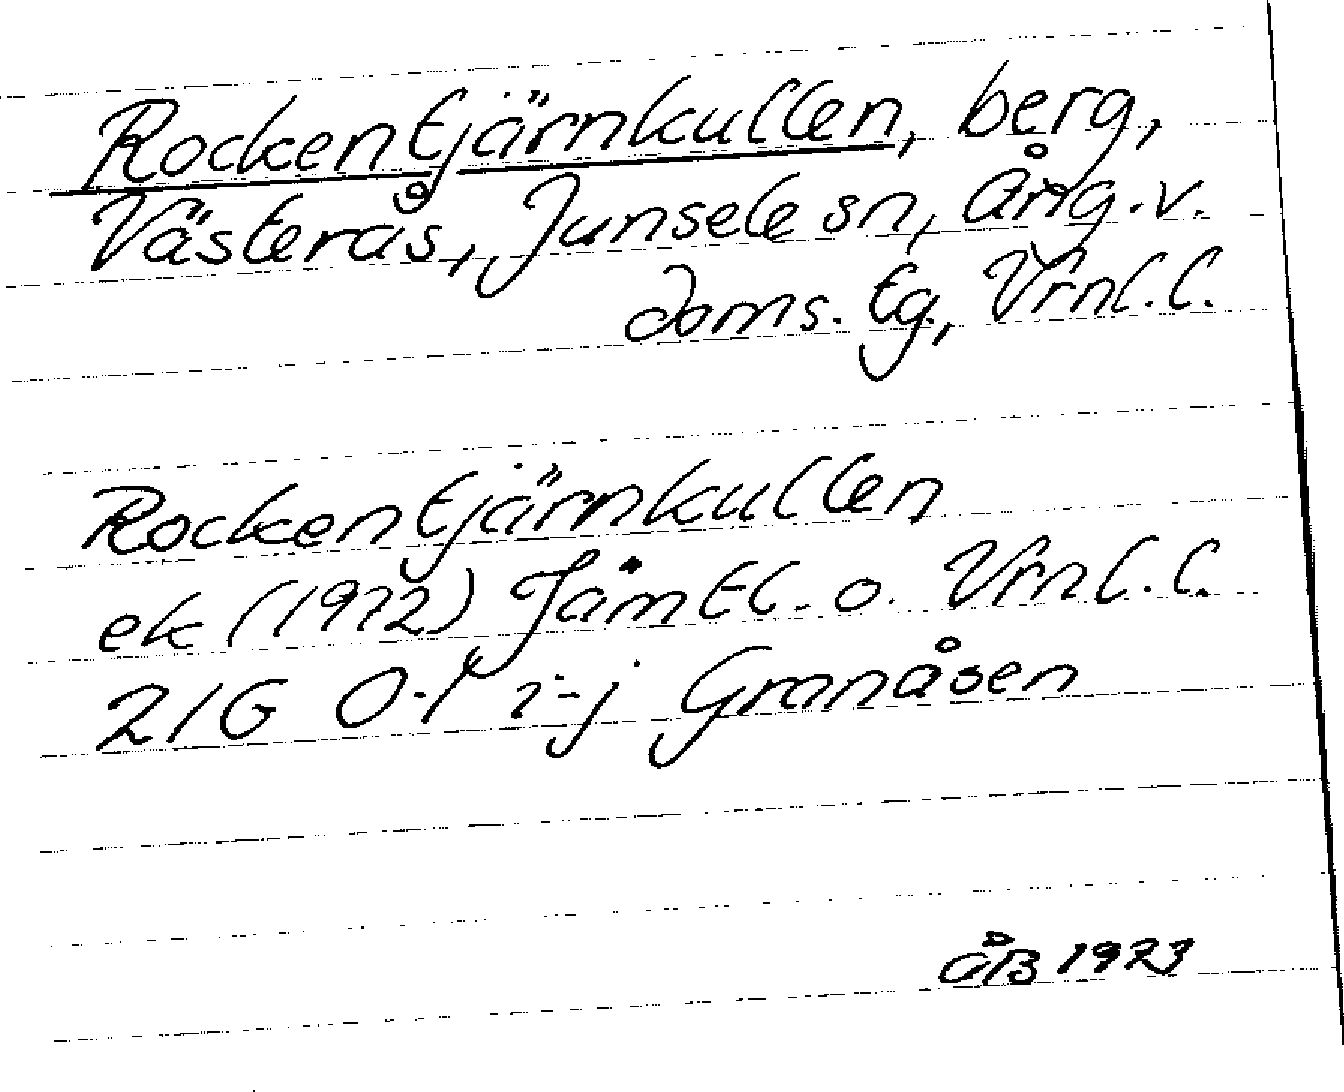 Rockentjärnkullen, berg,
Västerås, Junsele sn, Ång.v.
doms. tg, Vrnl.l.
Rockentjärnkullen
ek (1972) Jämtl. o. Vrnl.l.
21G O-P i-j Granåsen
ÅB 1973